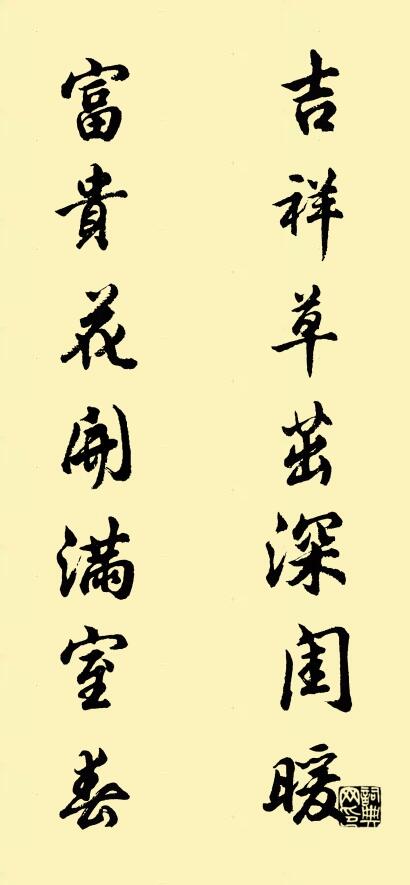 吉祥草茁深闺暖
富貴花開滿室春
詞典网印